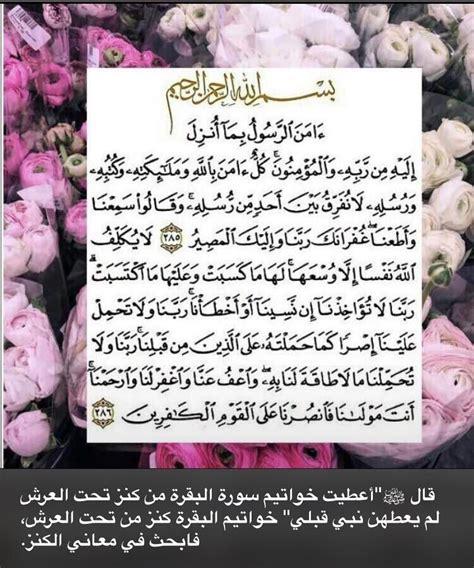 بسم الله الرحمن الرحيم
ءَامَنَ ٱلرَّسُولُ بِمَآ أُنزِلَ
إِلَيْهِ مِن رَّبِّهِۦ وَٱلْمُؤْمِنُونَ ۚ كُلٌّ ءَامَنَ بِٱللَّهِ وَمَلَٰٓئِكَتِهِۦ وَكُتُبِهِۦ
وَرُسُلِهِۦ لَا نُفَرِّقُ بَيْنَ أَحَدٍ مِّن رُّسُلِهِۦ ۚ وَقَالُوا۟ سَمِعْنَا
وَأَطَعْنَا ۖ غُفْرَانَكَ رَبَّنَا وَإِلَيْكَ ٱلْمَصِيرُ ٢٨٥ لَا يُكَلِّفُ
ٱللَّهُ نَفْسًا إِلَّا وُسْعَهَا ۚ لَهَا مَا كَسَبَتْ وَعَلَيْهَا مَا ٱكْتَسَبَتْ ۗ
رَبَّنَا لَا تُؤَاخِذْنَآ إِن نَّسِينَآ أَوْ أَخْطَأْنَا ۚ رَبَّنَا وَلَا تَحْمِلْ
عَلَيْنَآ إِصْرًا كَمَا حَمَلْتَهُۥ عَلَى ٱلَّذِينَ مِن قَبْلِنَا ۚ رَبَّنَا وَلَا
تُحَمِّلْنَا مَا لَا طَاقَةَ لَنَا بِهِۦ ۖ وَٱعْفُ عَنَّا وَٱغْفِرْ لَنَا وَٱرْحَمْنَآ ۚ
أَنتَ مَوْلَىٰنَا فَٱنصُرْنَا عَلَى ٱلْقَوْمِ ٱلْكَٰفِرِينَ ٢٨٦
قال ﷺ "أعطيت خواتيم سورة البقرة من كنز تحت العرش
لم يعطهن نبي قبلي" خواتيم البقرة كنز من تحت العرش،
فابحث في معاني الكنز.